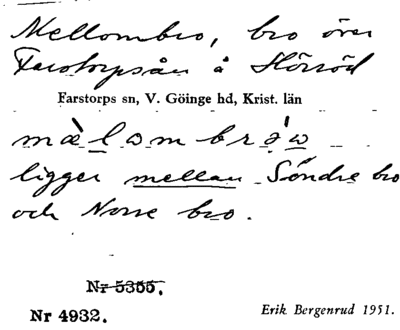 Mellombro, bro över
Farstorpsån å Hörröd
Farstorps sn, V. Göinge hd, Krist. län
ligger mellan Söndre bro
och Norre bro.
Nr 5355.
Nr 4932.
Erik Bergenrud 1951.